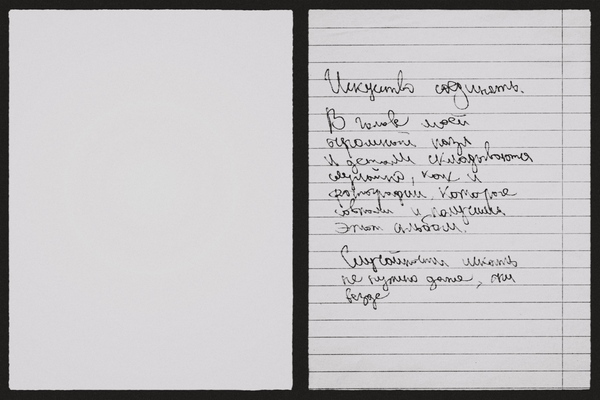 Искусство соединять.
В голове моей
огромный пазл
и детали складываются
случайно, как и
фотографии, которые
сделали и получили
этот альбом.
Случайности искать
не нужно даже, они
везде